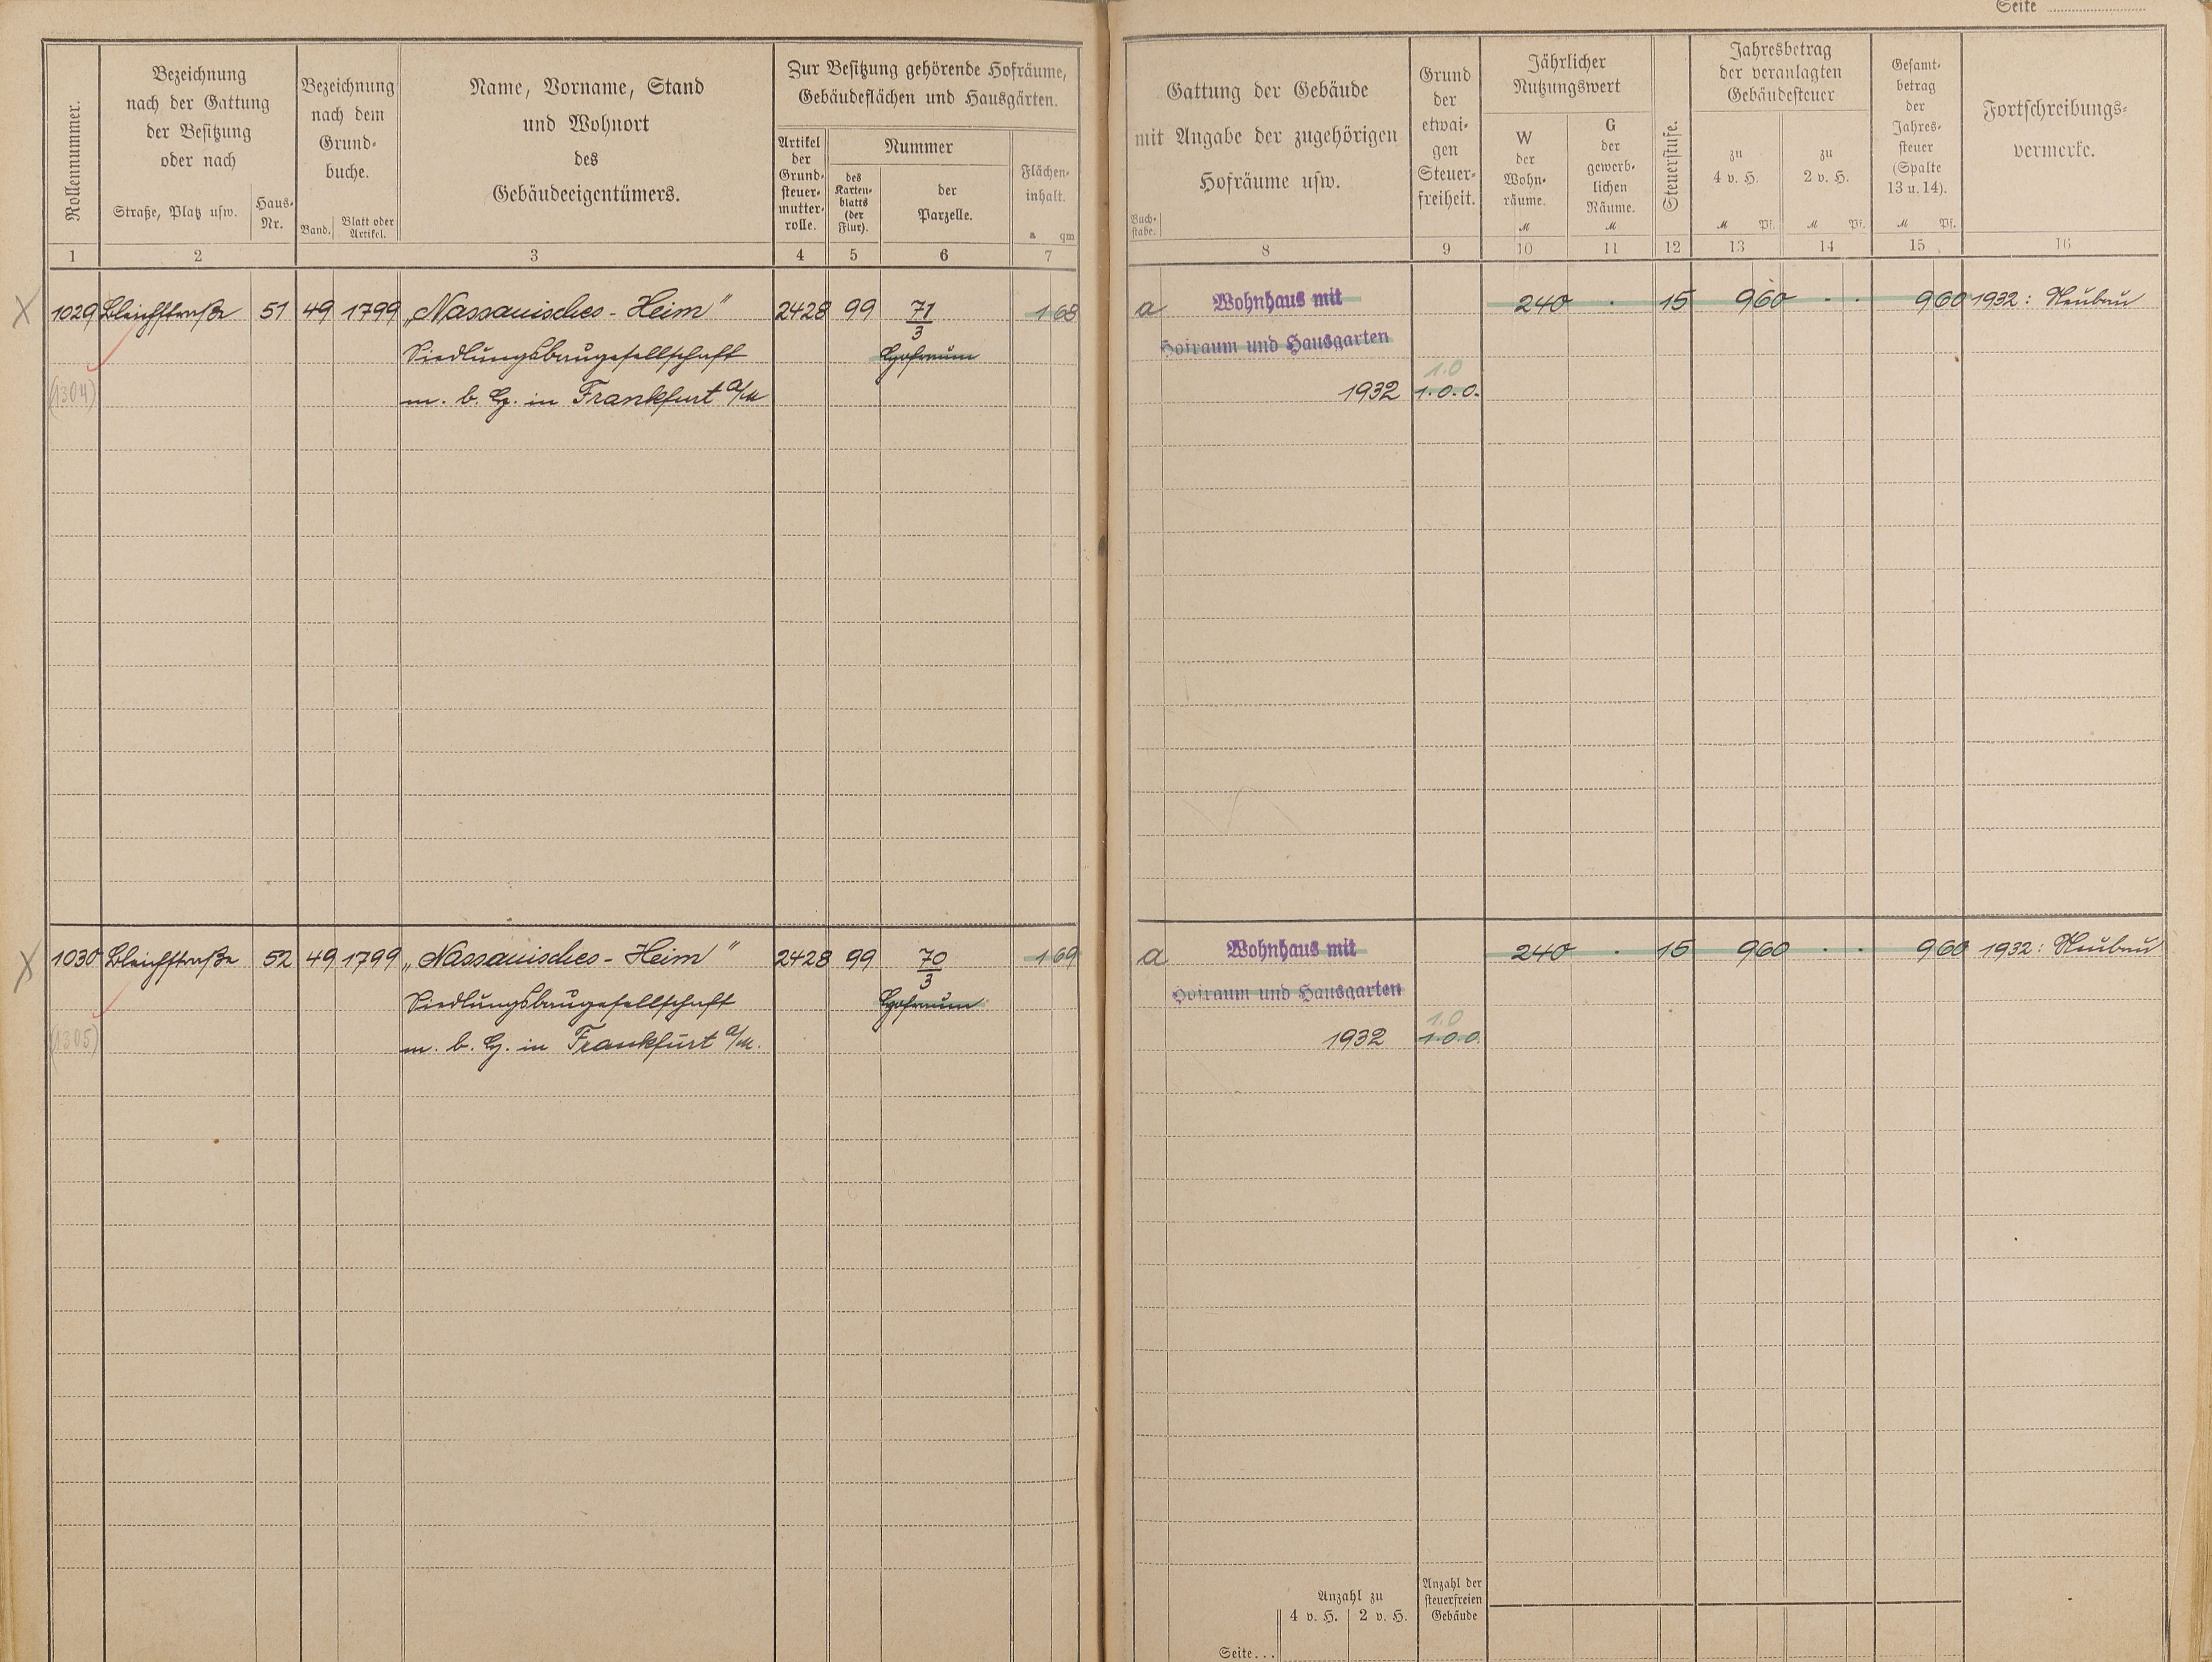 Seite
Rollennummer.
Bezeichnung
nach der Gattung
der Besitzung
oder nach
Straße, Platz usw.
Haus-
Nr.
Bezeichnung
nach dem
Grund-
buche.
Band.
Blatt oder
Artikel.
Name, Vorname, Stand
und Wohnort
des
Gebäudeeigentümers.
Zur Besitzung gehörende Hofräume,
Gebäudeflächen und Hausgärten.
Artikel
der
Grund-
steuer-
mutter-
rolle.
Nummer
des
Karten-
blatts
(der
Flur).
der
Parzelle.
Flächen-
inhalt.
a qm
1 2 3 4 5 6 7
Gattung der Gebäude
mit Angabe der zugehörigen
Hofräume usw.
Buch-
stabe.
Grund
der
etwai-
gen
Steuer-
freiheit.
Jährlicher
Nutzungswert
W
der
Wohn-
räume.
M
G
der
gewerb-
lichen
Räume.
M
Steuerstufe.
Jahresbetrag
der veranlagten
Gebäudesteuer
zu
4 v. H.
M Pf.
zu
2 v. H.
M Pf.
Gesamt-
betrag
der
Jahres-
steuer
(Spalte
13 u. 14).
M Pf.
Fortschreibungs-
vermerke.
8 9 10 11 12 13 14 15 16
1029 Bleichstraße 51 49 1799 „Nassauisches-Heim" 2428 99 71/3 1 68
Siedlungsbaugesellschaft Hofraum
(1304) m. b. H. in Frankfurt a/M
a Wohnhaus mit 240 . 15 9 60 . . 9 60 1932: Neubau
Hofraum und Hausgarten
1.0
1932 1.0.0.
1030 Bleichstraße 52 49 1799 „Nassauisches-Heim" 2428 99 70/3 1 69
Siedlungsbaugesellschaft Hofraum
(1305) m. b. H. in Frankfurt a/M.
a Wohnhaus mit 240 . 15 9 60 . . 9 60 1932: Neubau
Hofraum und Hausgarten
1.0
1932 1.0.0
Anzahl zu
4 v. H. 2 v. H.
Anzahl der
steuerfreien
Gebäude
Seite...